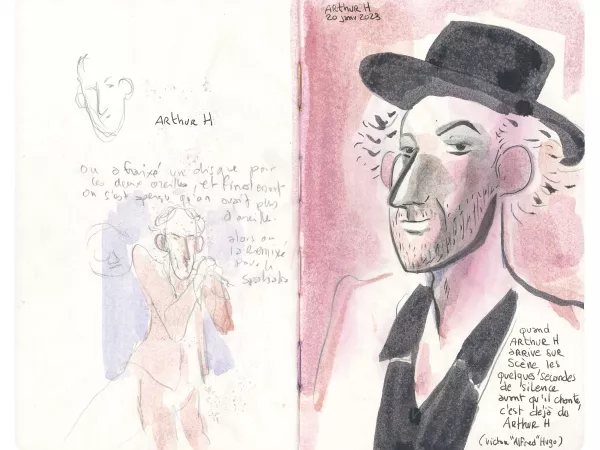 ARTHUR H
on a mixé un disque pour
les deux oreilles, et finalement
on s'est aperçu qu'on avait plus
d'oreille.
alors on
l'a remixé
pour le
ARTHUR H
20 janv 2023
quand
ARTHUR H
ARRIVE SUR
SCÈNE LES
quelques secondes
DE SILENCE
avant qu'il chante,
c'est déjà du
ARTHUR H
(Victor "Alfred" Hugo)